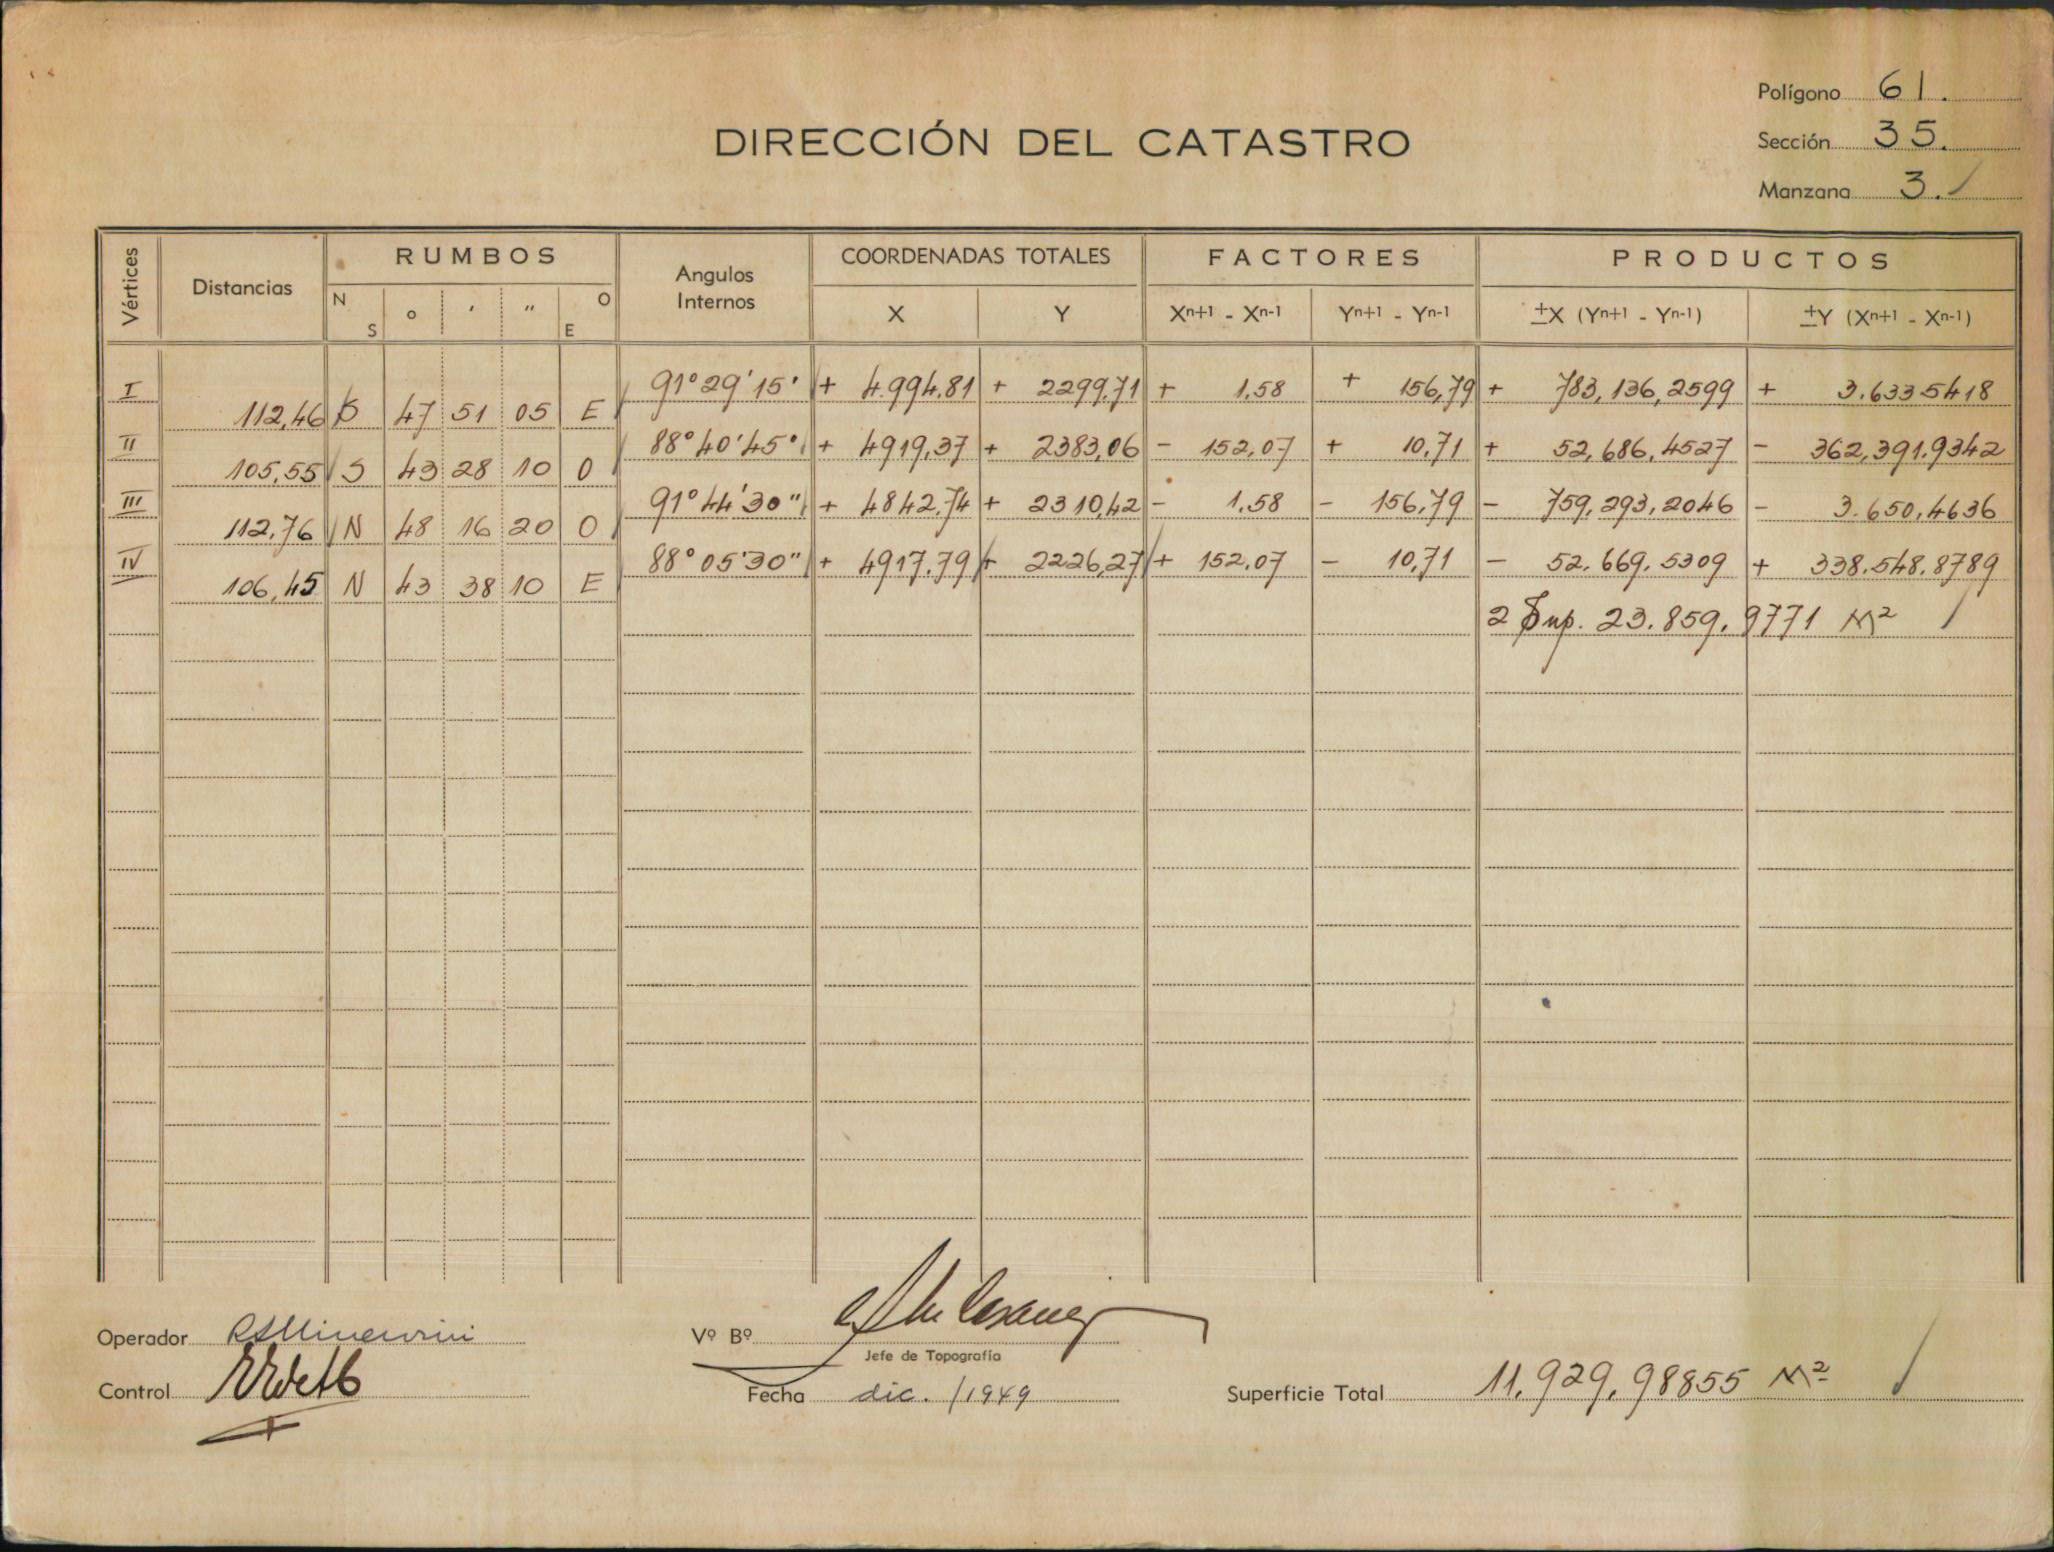 Polígono 61.
DIRECCIÓN DEL CATASTRO
Sección 35.
Manzana 3.
Vértices Distancias RUMBOS N S ° ′ ″ E O Angulos Internos COORDENADAS TOTALES X Y FACTORES Xn+1 - Xn-1 Yn+1 - Yn-1 PRODUCTOS ±X (Yn+1 - Yn-1) ±Y (Xn+1 - Xn-1)
I 91° 29' 15' + 4.994,81 + 2299,71 + 1,58 + 156,79 + 783,136,2599 + 3.6335418
112,46 S 47 51 05 E
II 88° 40' 45" + 4919,37 + 2383,06 - 152,07 + 10,71 + 52,686,4527 - 362,391,9342
105,55 S 43 28 10 O
III 91° 44' 30" + 4842,74 + 2310,42 - 1,58 - 156,79 - 759,293,2046 - 3.650,4636
112,76 N 48 16 20 O
IV 88° 05' 30" + 4917,79 + 2226,27 + 152,07 - 10,71 - 52.669,5309 + 338.548,8789
106,45 N 43 38 10 E
2 Sup. 23.859,9771 M²
Operador
Vº Bº
Jefe de Topografía
Control
Fecha dic. /1949
Superficie Total 11.929,98855 M²